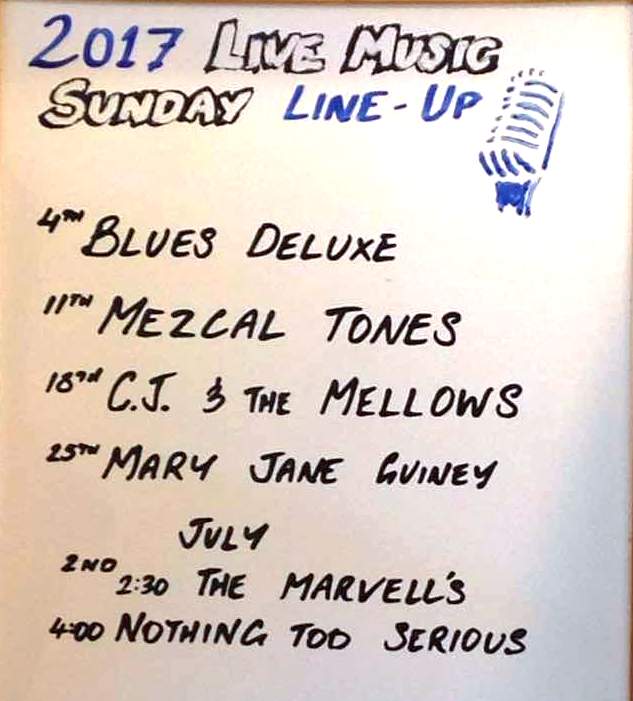 2017 LIVE MUSIC
SUNDAY LINE-UP
4TH BLUES DELUXE
11TH MEZCAL TONES
18TH C.J. & THE MELLOWS
25TH MARY JANE GUINEY
JULY
2ND 2:30 THE MARVELL'S
4:00 NOTHING TOO SERIOUS